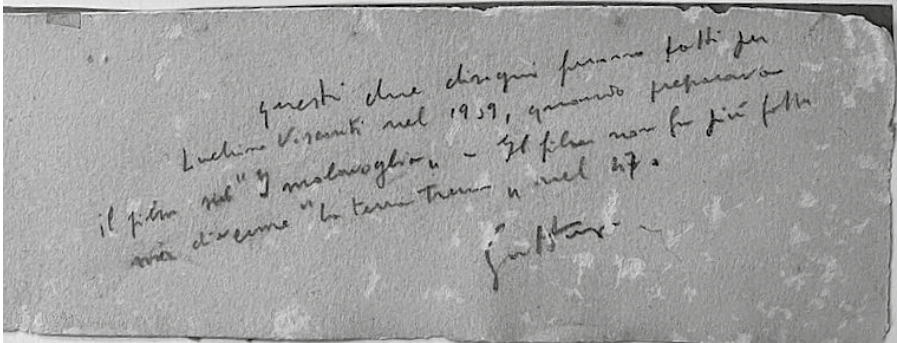 questi due disegni furono fatti per
Luchino Visconti nel 1939, quando preparava
il film sul "I malavoglia" - Il film non fu più fatto
ma divenne "la terra trema" nel 47.